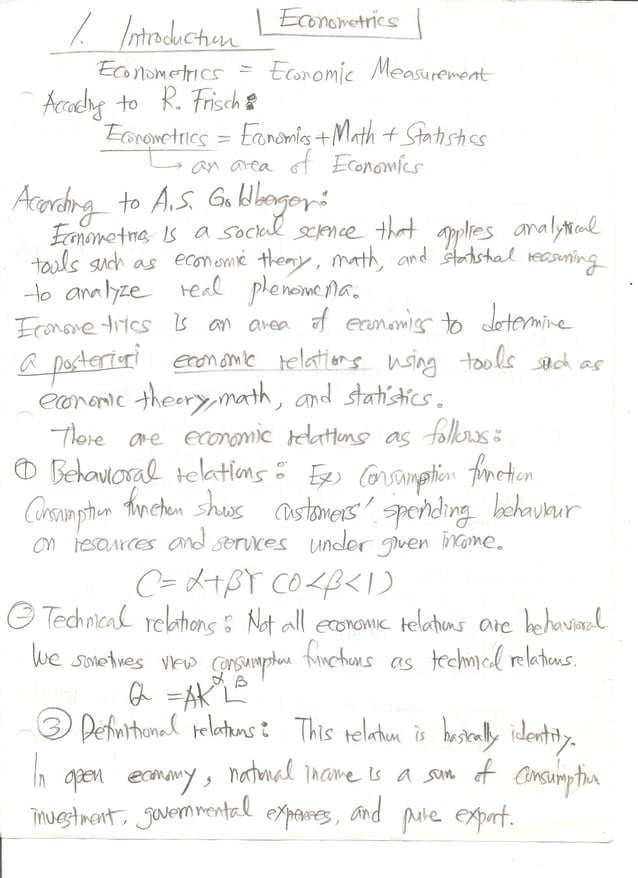 Econometrics
1. Introduction
Econometrics = Economic Measurement
According to R. Frisch:
Econometrics = Economics + Math + Statistics
→ an area of Economics
According to A.S. Goldberger:
Econometrics is a social science that applies analytical
tools such as economic theory, math, and statistical reasoning
to analyze real phenomena.
Econometrics is an area of economics to determine
a posteriori economic relations using tools such as
economic theory, math, and statistics.
There are economic relations as follows:
① Behavioral relations: Ex) Consumption function
Consumption function shows customers' spending behaviour
on resources and services under given income.
C = α+βY (0<β<1)
② Technical relations: Not all economic relations are behavioral
We sometimes view consumption functions as technical relations.
Q = AK^α L^β
③ Definitional relations: This relation is basically identity.
In open economy, national income is a sum of consumption
investment, governmental expenses, and pure export.